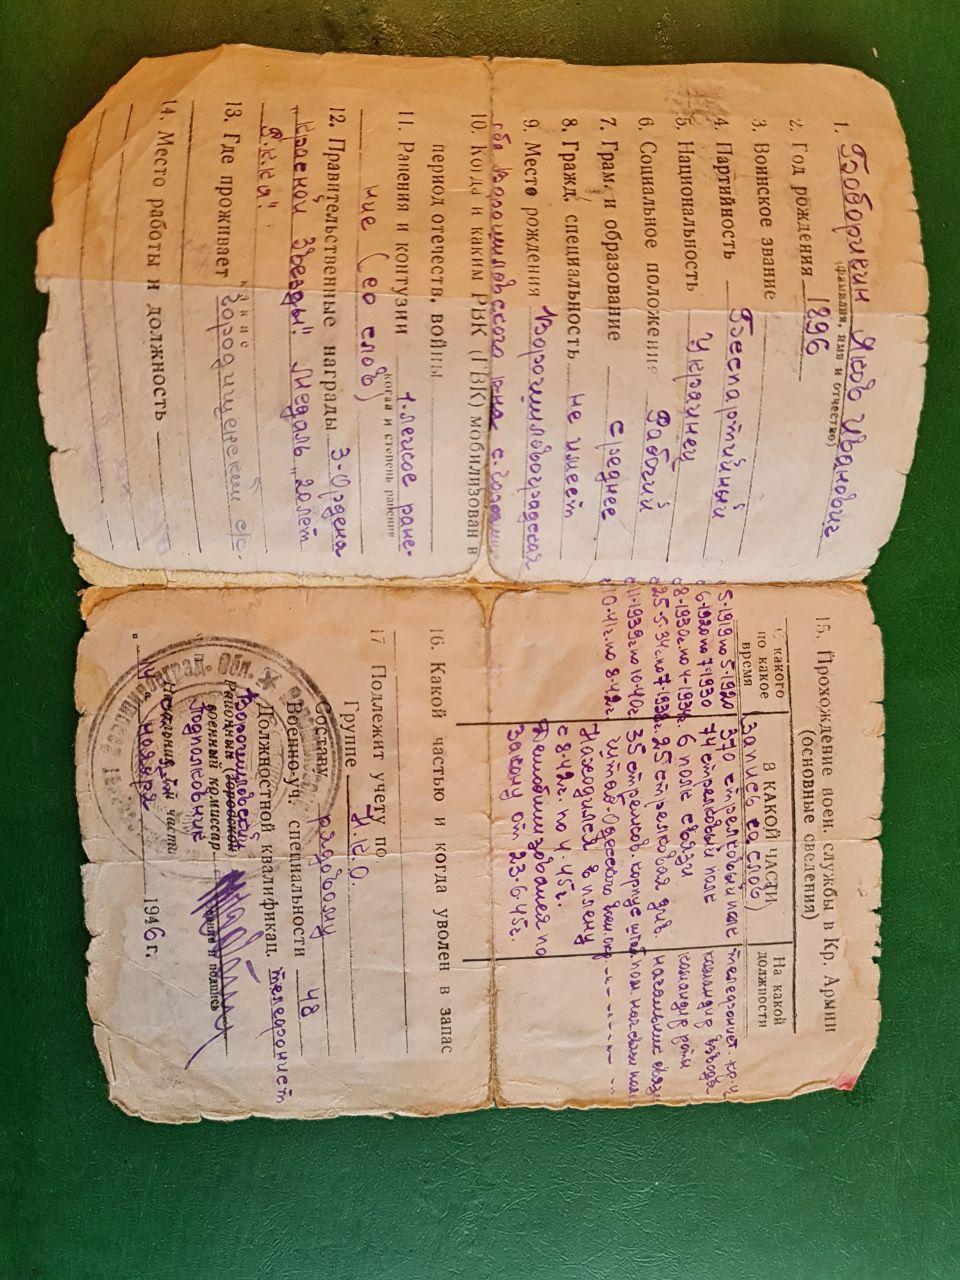 1. Боборикин Яков Иванович
(фамилия, имя и отчество)
2. Год рождения 1896
3. Воинское звание
4. Партийность Беспартийный
5. Национальность Украинец
6. Социальное положение Рабочий
7. Грам. и образование среднее
8. Гражд. специальность не имеет
9. Место рождения Ворошиловградская
обл Ворошиловского р-на с.
10. Когда и каким РВК (ГВК) мобилизован в
период отечеств. войны
11. Ранения и контузии 1-легкое ране-
когда и степень ранения
ние (со слов)
12. Правительственные награды 3-Ордена
какие
"Красной Звезды". медаль "20 лет
Р.К.К.А".
13. Где проживает Городищенский с/с.
14. Место работы и должность
15. Прохождение воен. службы в Кр. Армии
(основные сведения)
С какого
по какое
время
В КАКОЙ ЧАСТИ
(запись со слов)
На какой
должности
5-1919 по 5-1920 370 стрелковый полк телефонист.
6-1920 по 7-1930 74 стрелковый полк командир взвода
8-1930г. по 4-1934г. 6 полк связи командир роты
с 25-5-34г. по 7-1938г. 25 стрелковая див. начальник связи
с 11-1939г. по 10-40г. 35 стрелков. корпус штаб пом. нач связи
с 10-41г. по 8-42г. штаб-Одесского воен. окр -"- -"- -"-
Находился в плену
с 8 42г. по 4-45г.
Демобилизовался по
Закону от 23-6-45г.
16. Какой частью и когда уволен в запас
17 Подлежит учету по
Группе Н.К.О.
Составу рядовому
Военно-уч. специальности 48
Должностной квалификац. телефонист
Ворошиловский
Районный (Городской)
военный комиссар
Подполковник
чин и подпись
Начальник 1-й части
"14" ноября 1946 г.